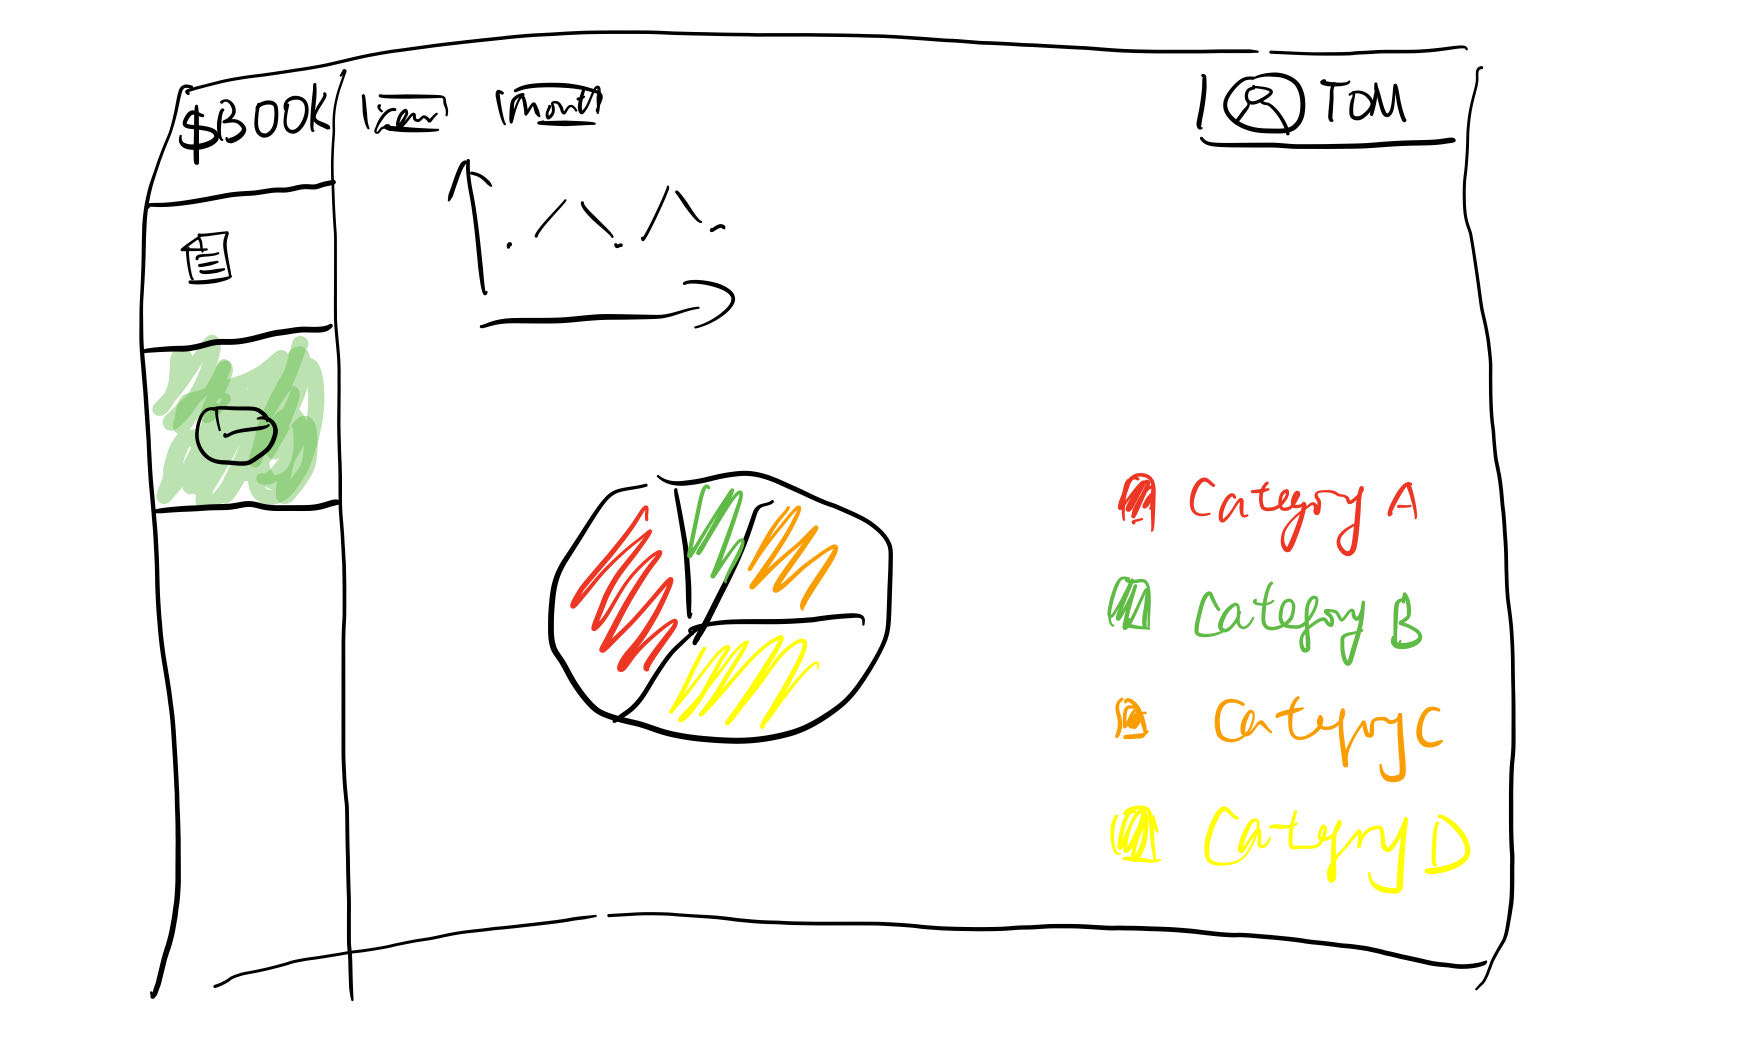 $BOOK
Year
Month
TOM
Category A
Category B
Category C
Category D